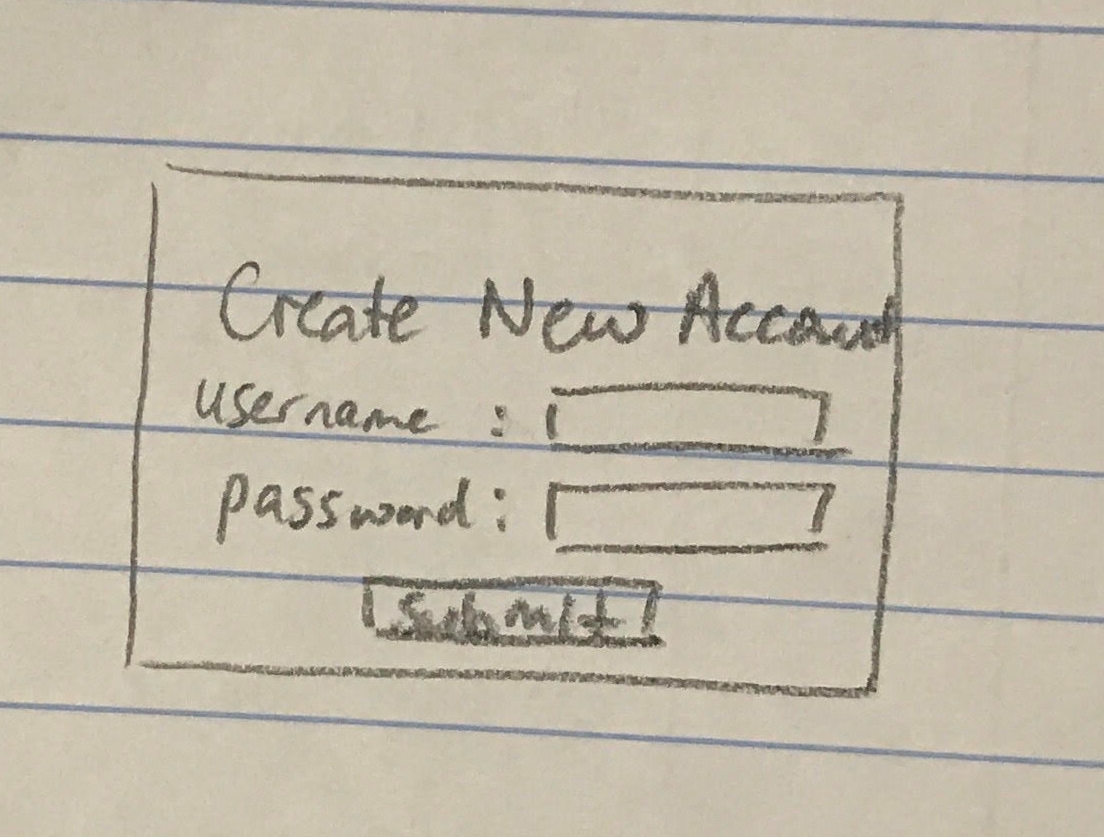 Create New Account
username :
password :
Submit